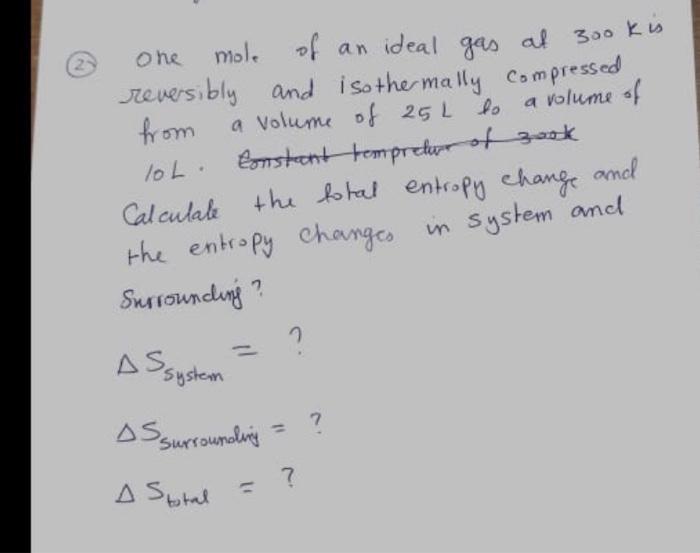 2) One mole of an ideal gas at 300 K is
reversibly and isothermally compressed
from a volume of 25 L to a volume of
10 L. Constant tempretur of 300K
Calculate the total entropy change and
the entropy changes in system and
Surrounding?
Δ S system = ?
Δ S surrounding = ?
Δ S total = ?